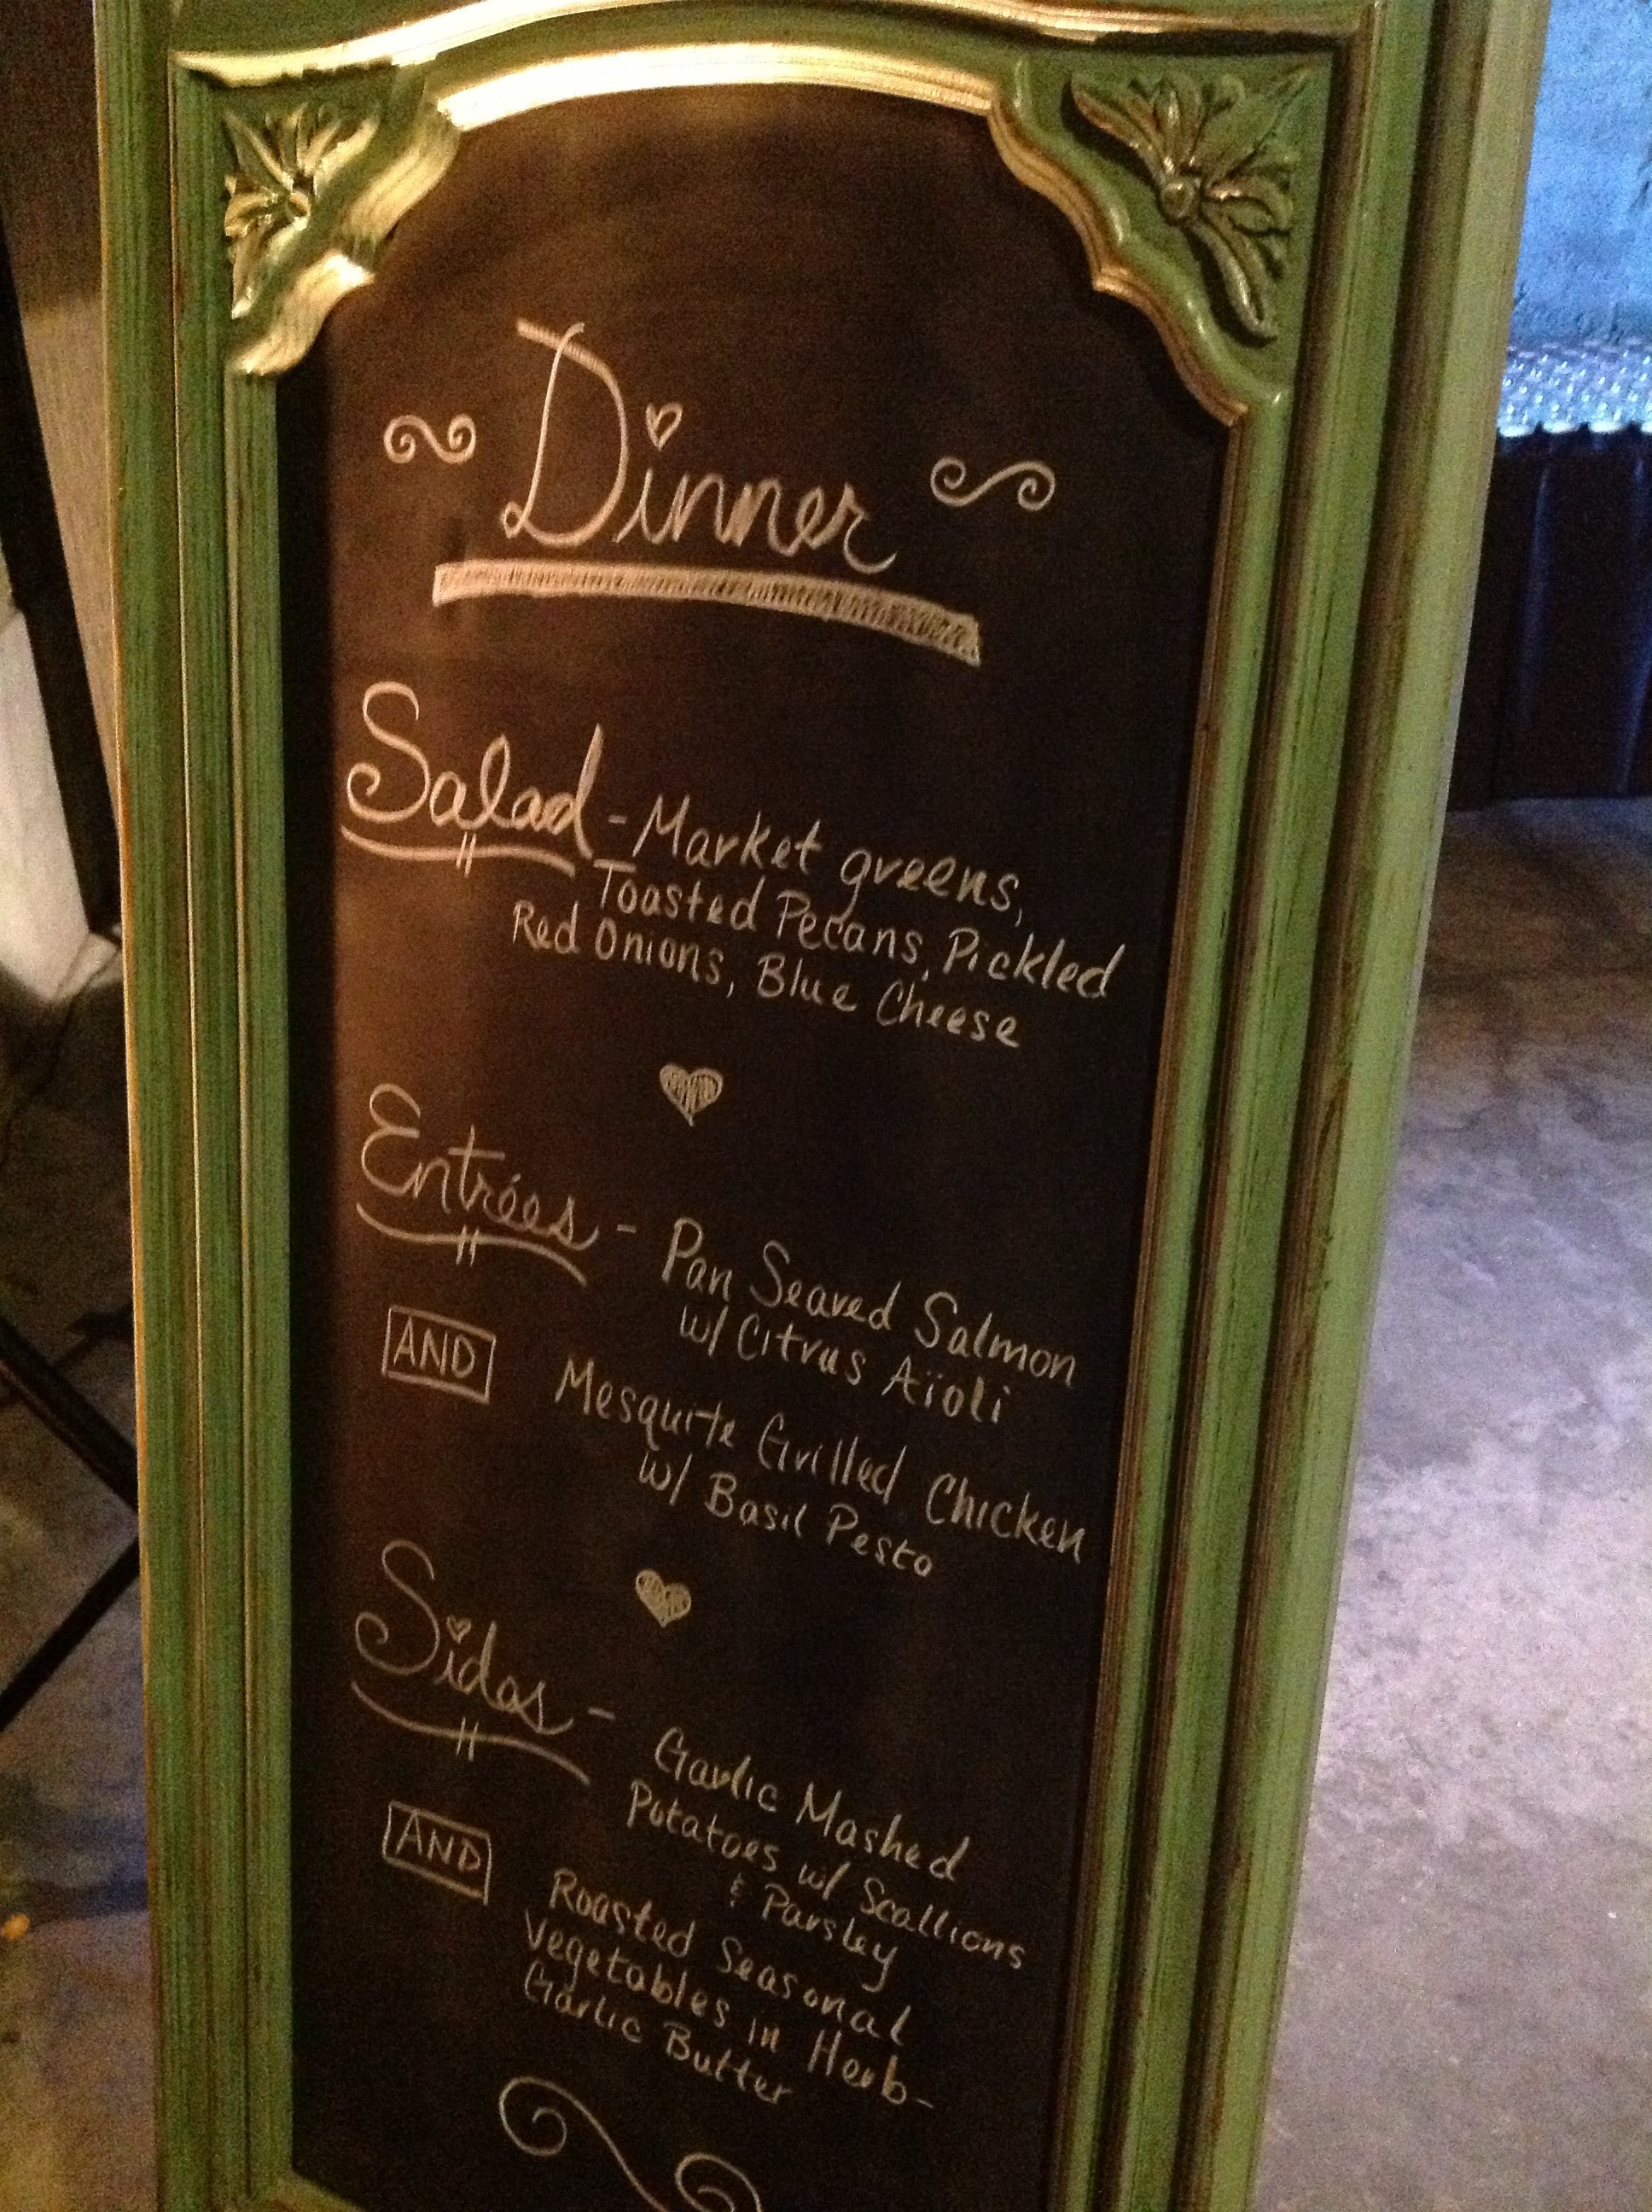 Dinner
Salad - Market greens,
Toasted Pecans, Pickled
Red Onions, Blue Cheese
Entrées - Pan Seared Salmon
w/ Citrus Aïoli
AND
Mesquite Grilled Chicken
w/ Basil Pesto
Sides - Garlic Mashed
Potatoes w/ Scallions
& Parsley
AND
Roasted Seasonal
Vegetables in Herb-
Garlic Butter